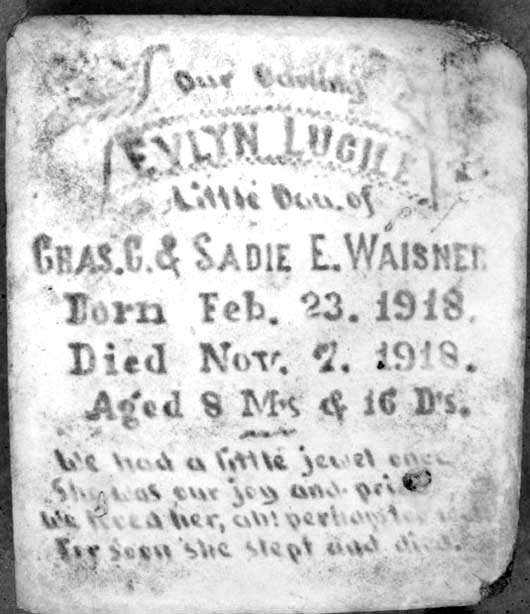 Our Darling
EVLYN LUCILE
Little Dau. of
CHAS. C. & SADIE E. WAISNER
Born Feb. 23. 1918.
Died Nov. 7. 1918.
Aged 8 Ms & 16 D's.
We had a little jewel once
She was our joy and pride
We loved her, ah! perhaps too
For soon she slept and died.